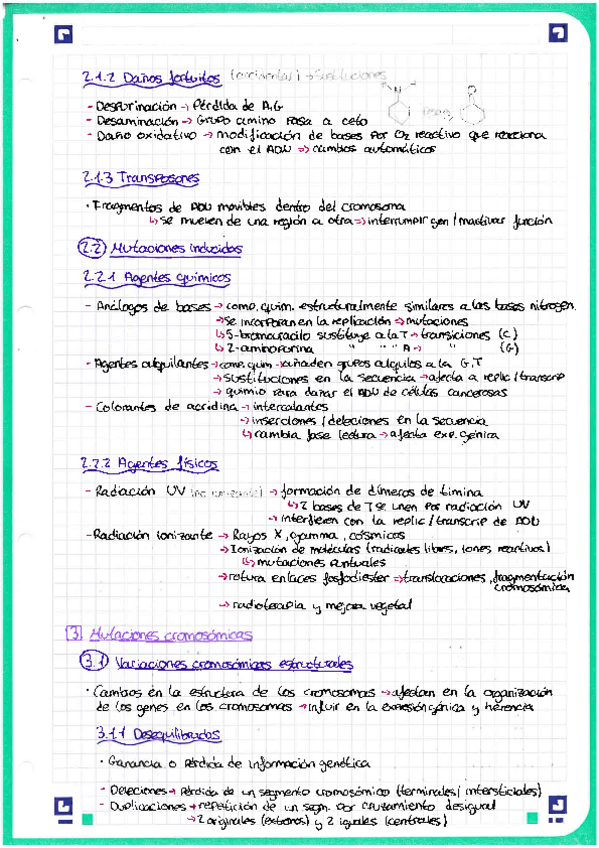 2.1.2 Daños fortuitos (accidental) → sustituciones
- Despurinación → Pérdida de A,G
- Desaminación → Grupo amino pasa a ceto
- Daño oxidativo → modificación de bases por O2 reactivo que reacciona
con el ADN => cambios automáticos
2.1.3 Transposones
· Fragmentos de ADN movibles dentro del cromosoma
↳ se mueven de una región a otra => interrumpir gen / inactivar función
2.2 Mutaciones inducidas
2.2.1 Agentes químicos
- Análogos de bases → comp. quím. estructuralmente similares a las bases nitrogen.
→ se incorporan en la replicación → mutaciones
↳ 5-bromouracilo sustituye a la T → transiciones (C)
↳ 2-aminopurina " " A → " (G)
- Agentes alquilantes → comp. quím. añaden grupos alquilos a la G,T
→ sustituciones en la secuencia → afecta a replic / transcrip
→ quimio para dañar el ADN de células cancerosas
- Colorantes de acridina → intercalantes
→ inserciones / deleciones en la secuencia
↳ cambia fase lectura → afecta exp. génica
2.2.2 Agentes físicos
- Radiación UV (no ionizante) → formación de dímeros de timina
↳ 2 bases de T se unen por radiación UV
→ interfieren con la replic / transcrip de ADN
- Radiación ionizante → Rayos X, gamma, cósmicos
→ Ionización de moléculas (radicales libres, iones reactivos)
↳ mutaciones puntuales
→ rotura enlaces fosfodiester → translocaciones, fragmentación
cromosómica
→ radioterapia y mejora vegetal
3 Mutaciones cromosómicas
3.1 Variaciones cromosómicas estructurales
· Cambios en la estructura de los cromosomas → afectan en la organización
de los genes en los cromosomas → influir en la expresión génica y herencia
3.1.1 Desequilibrados
· Ganancia o pérdida de información genética
- Deleciones → pérdida de un segmento cromosómico (terminales / intersticiales)
- Duplicaciones → repetición de un segm. por cruzamiento desigual
→ 2 originales (extremos) y 2 iguales (centrales)